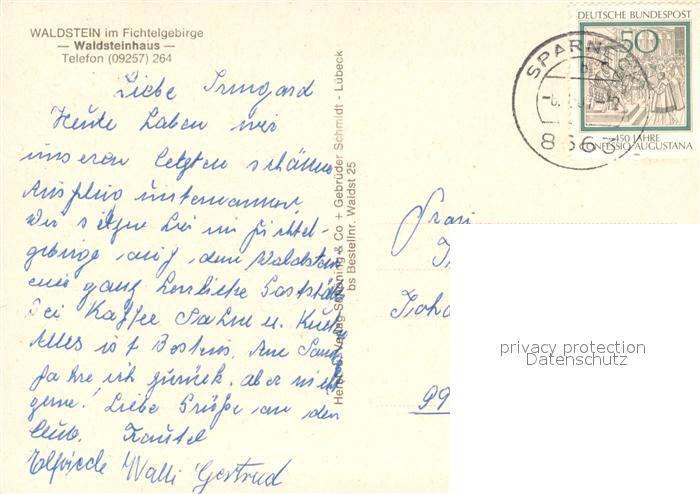 WALDSTEIN im Fichtelgebirge
— Waldsteinhaus —
Telefon (09257) 264
Liebe Irmgard
Heute haben wir
unseren letzten schönen
Ausflug unternommen,
Wir sitzen hier im Fichtel-
gebirge auf dem Waldstein
eine ganz herrliche Gaststätte
bei Kaffee Sahne u. Kuchen
Alles ist Bestens. Am
fahre ich zurück, aber nicht
gerne! Liebe Grüße an den
Club.
Elfriede Walli Gertrud
Schöning & Co + Gebrüder Schmidt - Lübeck
bs Bestellnr. Waldst 25
DEUTSCHE BUNDESPOST
50
450 JAHRE
CONFESSIO AUGUSTANA
SPARN
8663
Frau
99
privacy protection
Datenschutz